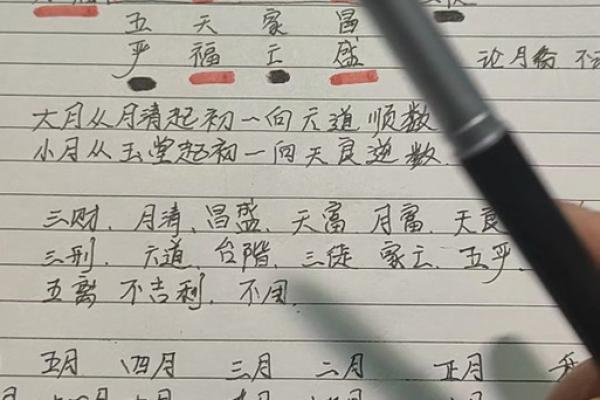 五 天 家 昌
严 福 亡 盛 论月份 不
大月从月清起初一向六道顺数
小月从玉堂起初一向天良逆数.
三财. 月清、昌盛. 天富. 月富. 天良
三刑. 六道、台階. 三徒 家亡. 五严.
五离 不吉利. 不用.
五月 四月 三月 二月 正月